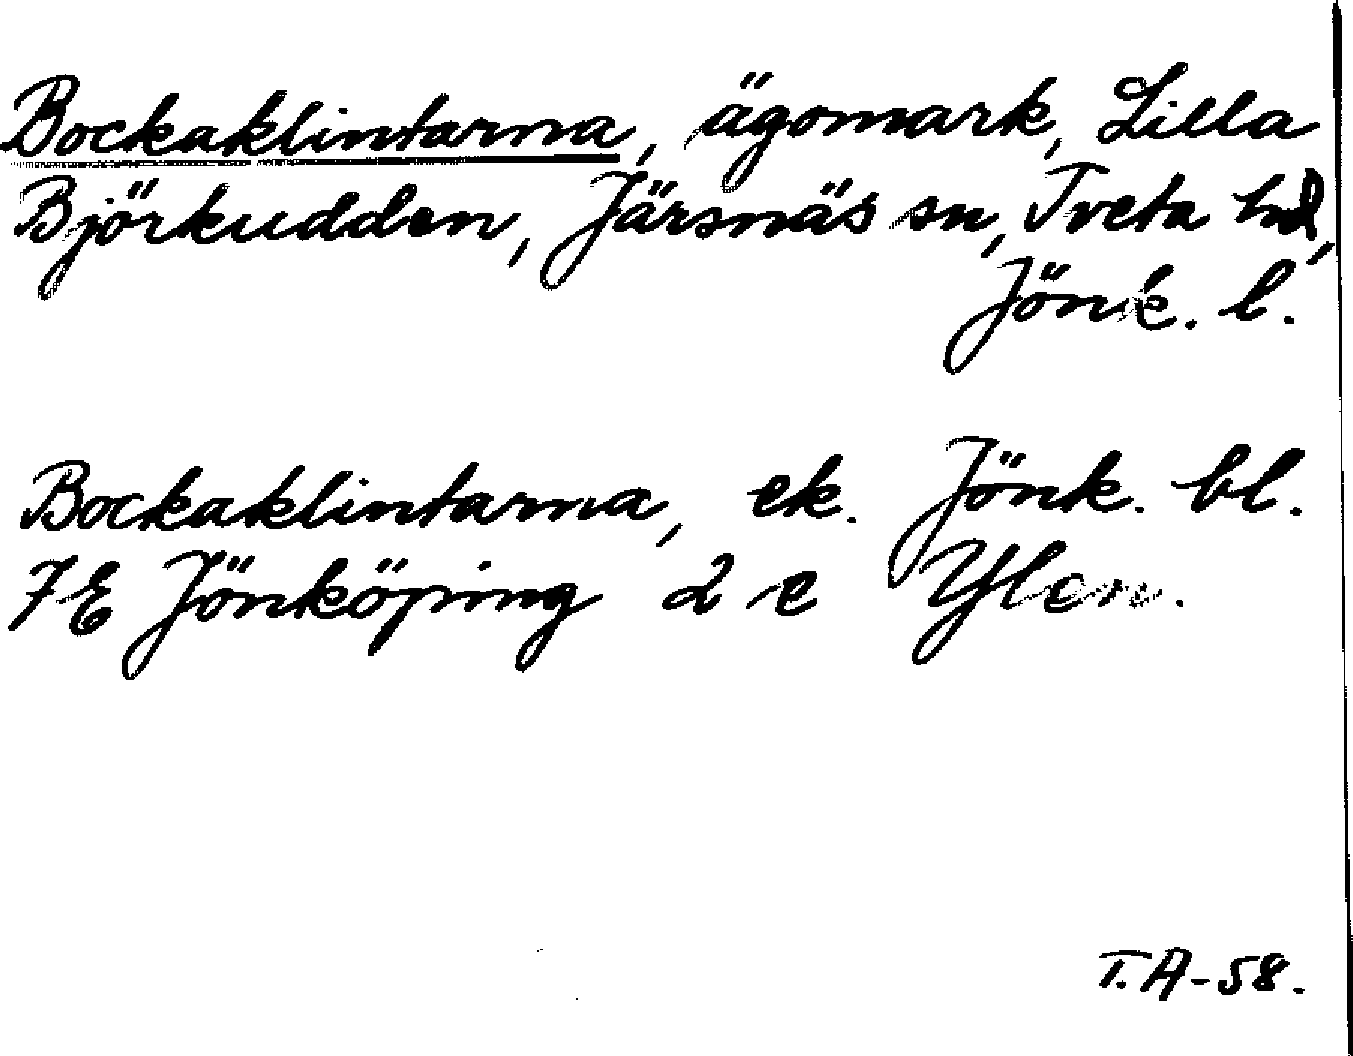 Bockaklintarna, ägomark, Lilla
Björkudden, Järsnäs sn, Tveta hd,
Jönk. l.
Bockaklintarna, ek. Jönk. bl.
7E Jönköping 2 e Ylen.
T.A-58.